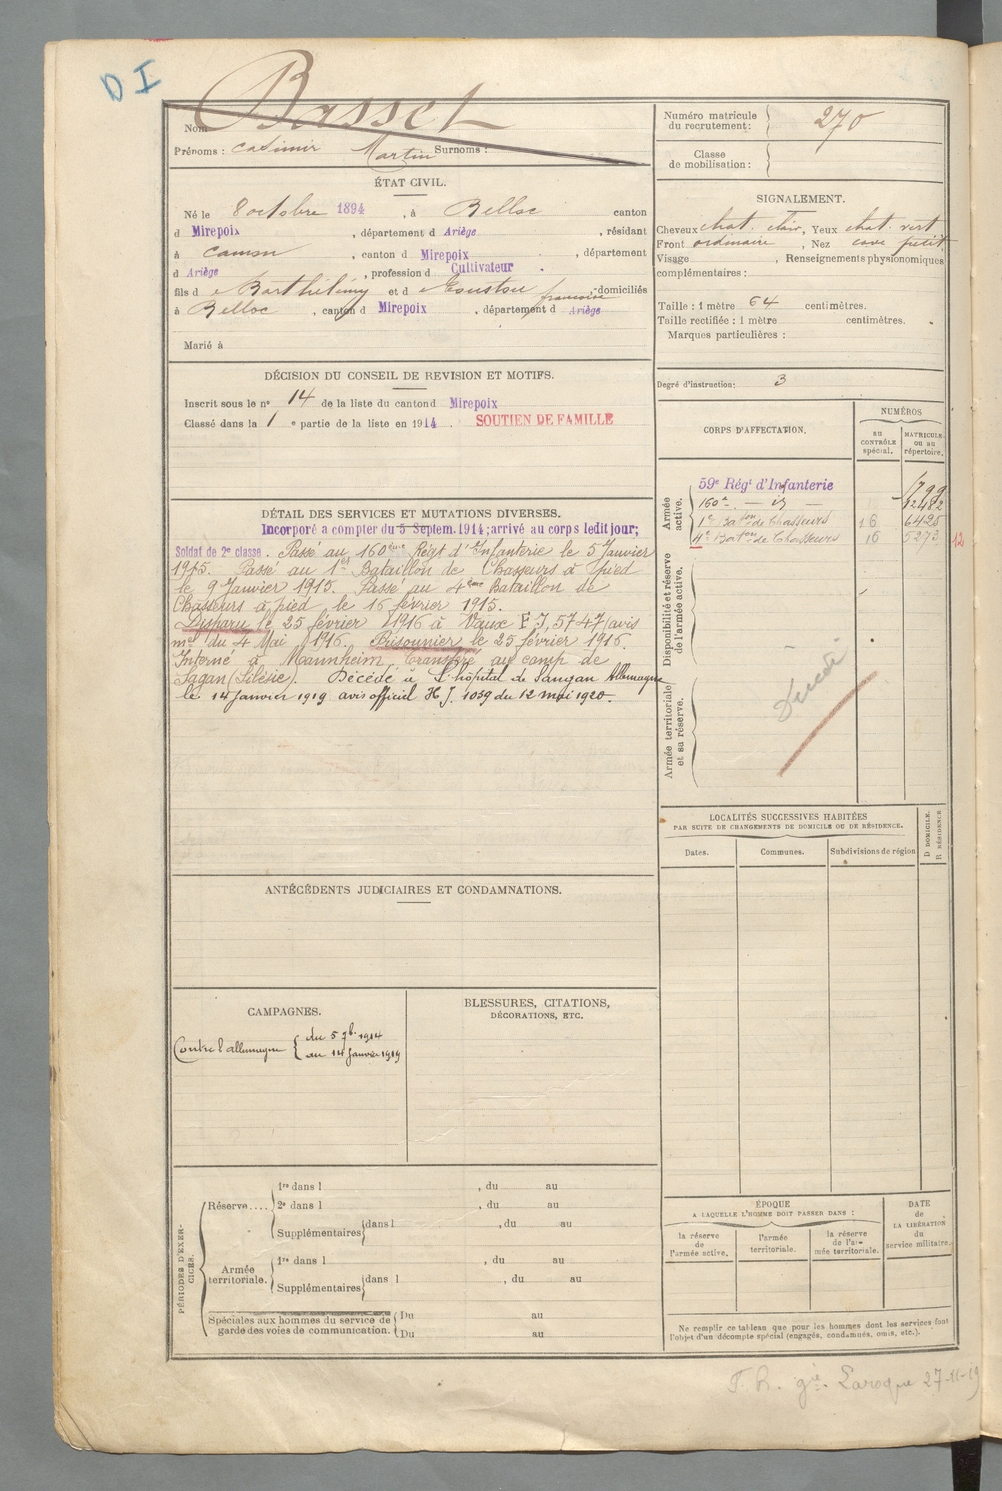 D I
Basset
Nom
Prénoms : Casimir Martin Surnoms :
Numéro matricule
du recrutement : 270
Classe
de mobilisation :
ÉTAT CIVIL.
Né le 8 octobre 1894, à Belloc canton
d Mirepoix, département d Ariège, résidant
à Camon, canton d Mirepoix, département
d Ariège, profession d Cultivateur.
fils d e Barthélémy et d e Coustou françoise, domiciliés
à Belloc, canton d Mirepoix, département d Ariège
Marié à
SIGNALEMENT.
Cheveux chat. clair, Yeux chat. vert
Front ordinaire, Nez cave petit
Visage , Renseignements physionomiques
complémentaires :
Taille : 1 mètre 64 centimètres.
Taille rectifiée : 1 mètre centimètres.
Marques particulières :
Degré d'instruction : 3
DÉCISION DU CONSEIL DE REVISION ET MOTIFS.
Inscrit sous le n° 14 de la liste du canton d Mirepoix
Classé dans la 1 e partie de la liste en 1914. SOUTIEN DE FAMILLE
CORPS D'AFFECTATION.
NUMÉROS
AU CONTRÔLE spécial.
MATRICULE ou au répertoire.
Armée active.
59e Régt d'Infanterie 1799
160e — id — 12482
1er Baton de Chasseurs 16 6425
4e Baton de Chasseurs 16 5272 12
Disponibilité et réserve de l'armée active.
Armée territoriale et sa réserve.
Décédé
DÉTAIL DES SERVICES ET MUTATIONS DIVERSES.
Incorporé a compter du 5 Septem. 1914; arrivé au corps ledit jour;
Soldat de 2e classe. Passé au 160ème Régt d'Infanterie le 5 Janvier
1915. Passé au 1er Bataillon de Chasseurs à pied
le 9 Janvier 1915. Passé au 4ème Bataillon de
Chasseurs à pied le 16 février 1915.
Disparu le 25 février 1916 à Vaux F J, 5747 (avis
mel du 4 Mai 1916. Prisonnier le 25 février 1916.
Interné à Mannheim, transféré au camp de
Sagan (Silésie). Décédé à l'hôpital de Sangan Allemagne
le 14 Janvier 1919 avis officiel H J. 1059 du 12 mai 1920.
LOCALITÉS SUCCESSIVES HABITÉES
PAR SUITE DE CHANGEMENTS DE DOMICILE OU DE RÉSIDENCE.
Dates.
Communes.
Subdivisions de région
D DOMICILE.
R RÉSIDENCE
ANTÉCÉDENTS JUDICIAIRES ET CONDAMNATIONS.
CAMPAGNES.
Contre l'allemagne { du 5 7b. 1914
au 14 Janvier 1919
BLESSURES, CITATIONS,
DÉCORATIONS, ETC.
PÉRIODES D'EXERCICES.
Réserve....
1re dans l , du au
2e dans l , du au
Supplémentaires dans l , du au
Armée territoriale.
1re dans l , du au
Supplémentaires dans l , du au
Spéciales aux hommes du service de
garde des voies de communication.
Du au
Du au
ÉPOQUE
A LAQUELLE L'HOMME DOIT PASSER DANS :
la réserve de l'armée active.
l'armée territoriale.
la réserve de l'armée territoriale.
DATE
de
LA LIBÉRATION
du
service militaire.
Ne remplir ce tableau que pour les hommes dont les services font
l'objet d'un décompte spécial (engagés, condamnés, omis, etc.).
Laroque 27-11-19